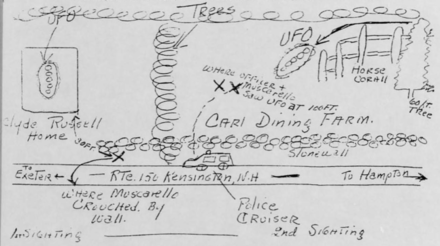 UFO
TREES
UFO
WHERE OFFICER +
MUSCARELLO
SAW UFO AT 100 FT.
HORSE
CORALL
60 FT.
TREE
CARL Dining FARM.
Clyde Russell
Home
30 FT
STONEWALL
TO
EXETER
RTE. 150 KENSINGTON, N.H
TO HAMPTON
WHERE MUSCARELLO
CROUCHED By
WALL.
Police
CRUISER
2nd SIGHTING
SIGHTING